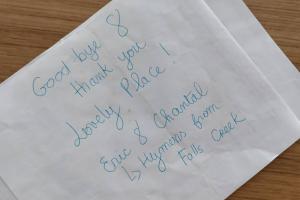 Good bye &
thank you
Lovely Place!
Eric & Chantal
↳ Hymers from
Falls Creek